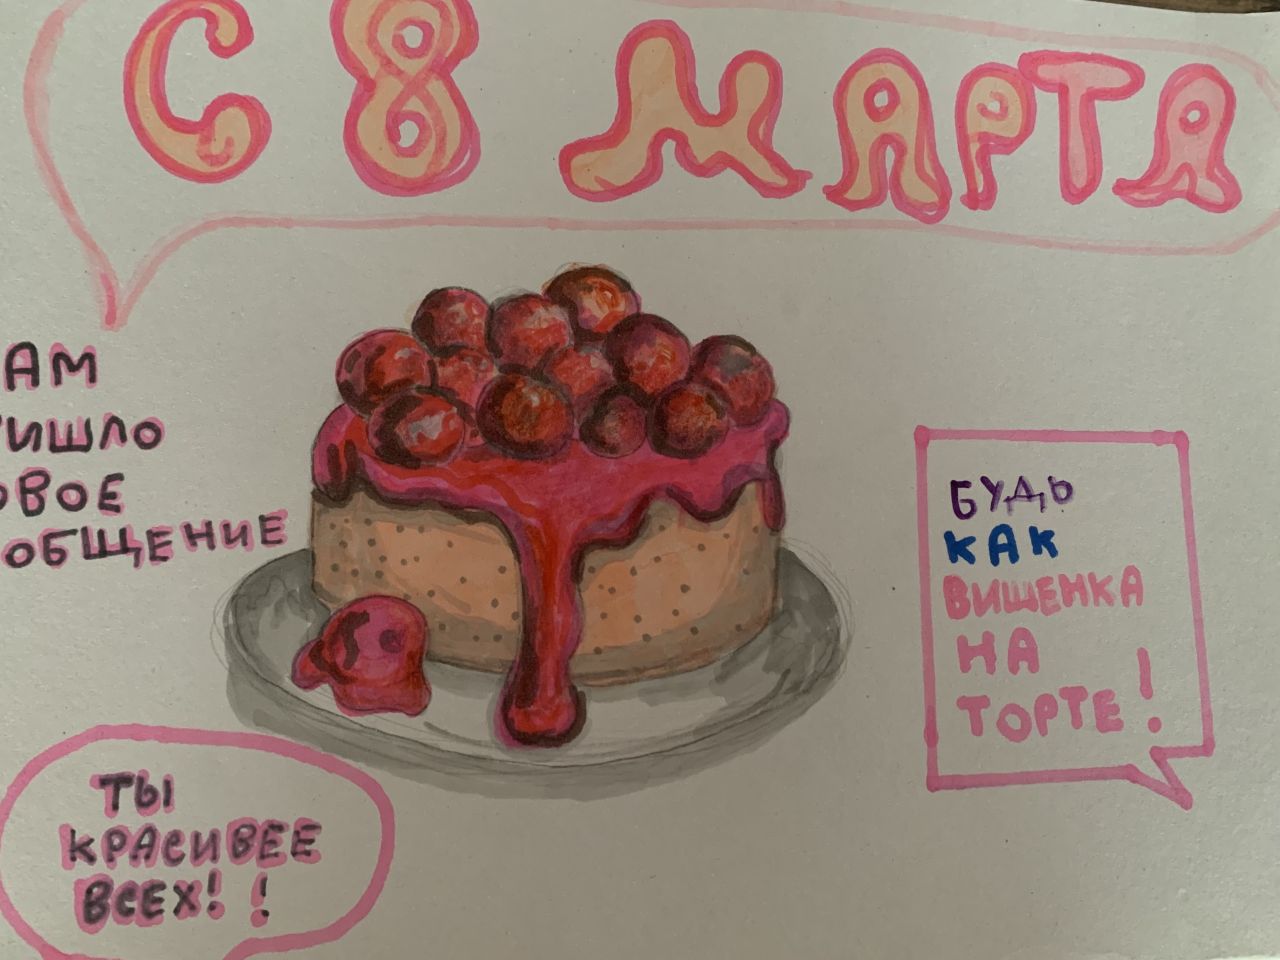 С 8 МАРТА
АМ
ИШЛО
ОВОЕ
ОБЩЕНИЕ
БУДЬ
КАК
ВИШЕНКА
НА
ТОРТЕ!
ТЫ
КРАСИВЕЕ
ВСЕХ!!